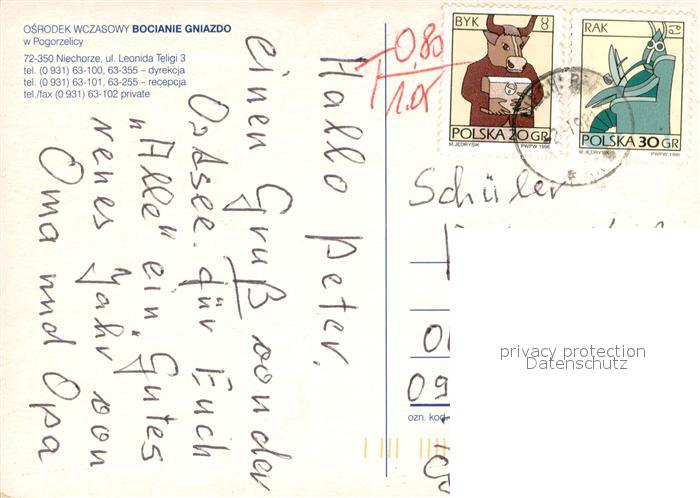 OŚRODEK WCZASOWY BOCIANIE GNIAZDO
w Pogorzelicy
72-350 Niechorze, ul. Leonida Teligi 3
tel. (0 931) 63-100, 63-355 – dyrekcja
tel. (0 931) 63-101, 63-255 – recepcja
tel./fax (0 931) 63-102 private
0,80
1.05
BYK 8
POLSKA 20 GR
M. JĘDRYSIK PWPW 1996
RAK 69
POLSKA 30 GR
PWPW 1996
Hallo Peter.
einen Gruß von der
Ostsee. für Euch
"Alle" ein Gutes
neues Jahr von
Oma und Opa
Schüler
09
ozn. kod
privacy protection
Datenschutz